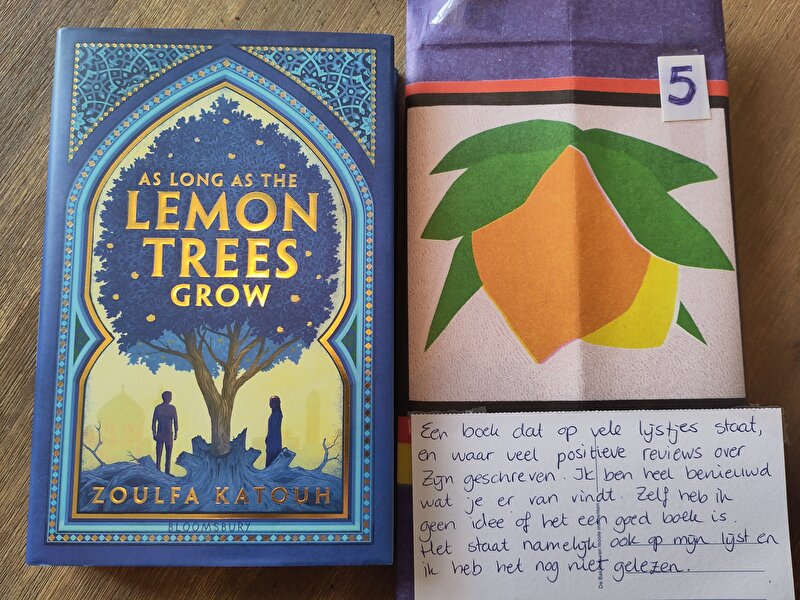 AS LONG AS THE
LEMON
TREES
GROW
ZOULFA KATOUH
BLOOMSBURY
5
Een boek dat op vele lijstjes staat,
en waar veel positieve reviews over
zijn geschreven. Ik ben heel benieuwd
wat je er van vindt. Zelf heb ik
geen idee of het een goed boek is.
Het staat namelijk ook op mijn lijst en
ik heb het nog niet gelezen.